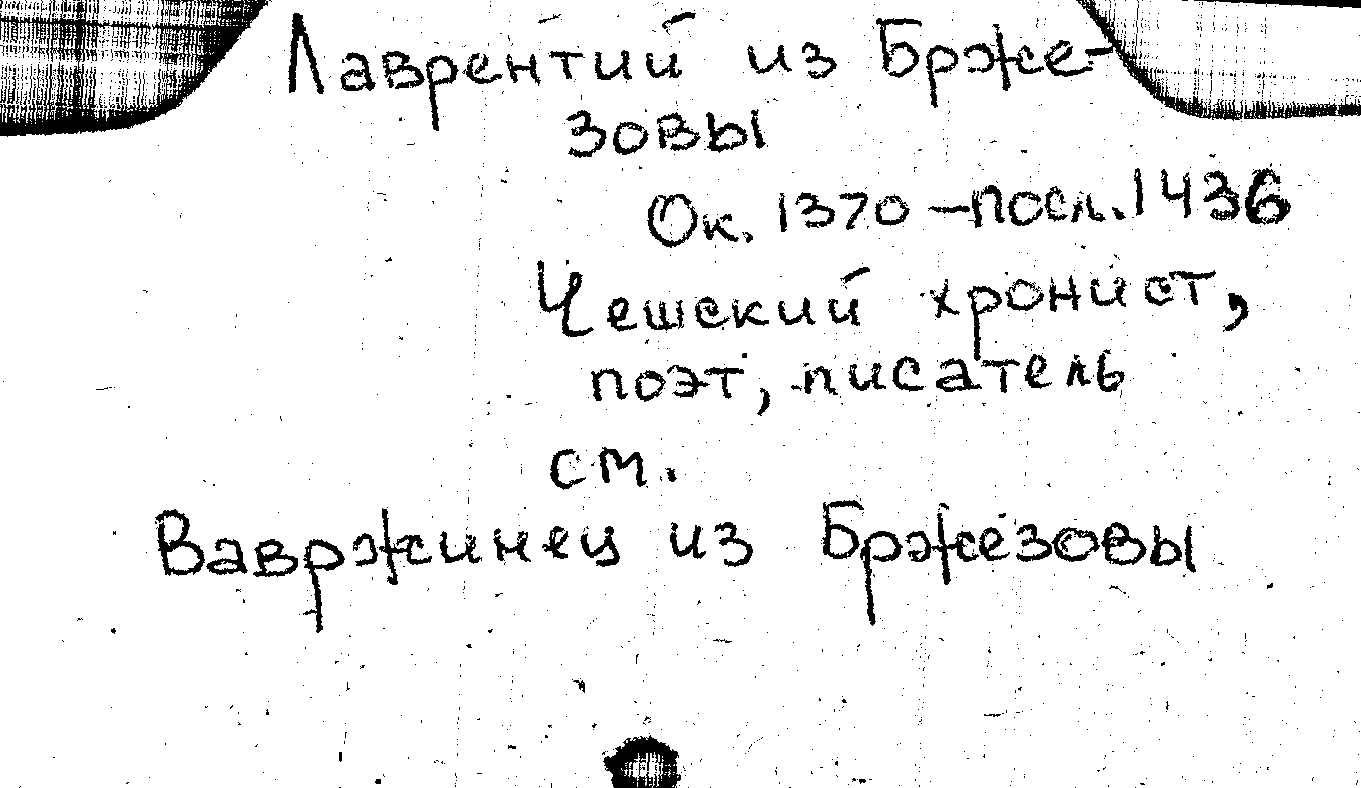 Лаврентий из Брже-
зовы
Ок. 1370 – посл. 1436
Чешский хронист,
поэт, писатель
см.
Вавржинец из Бржезовы